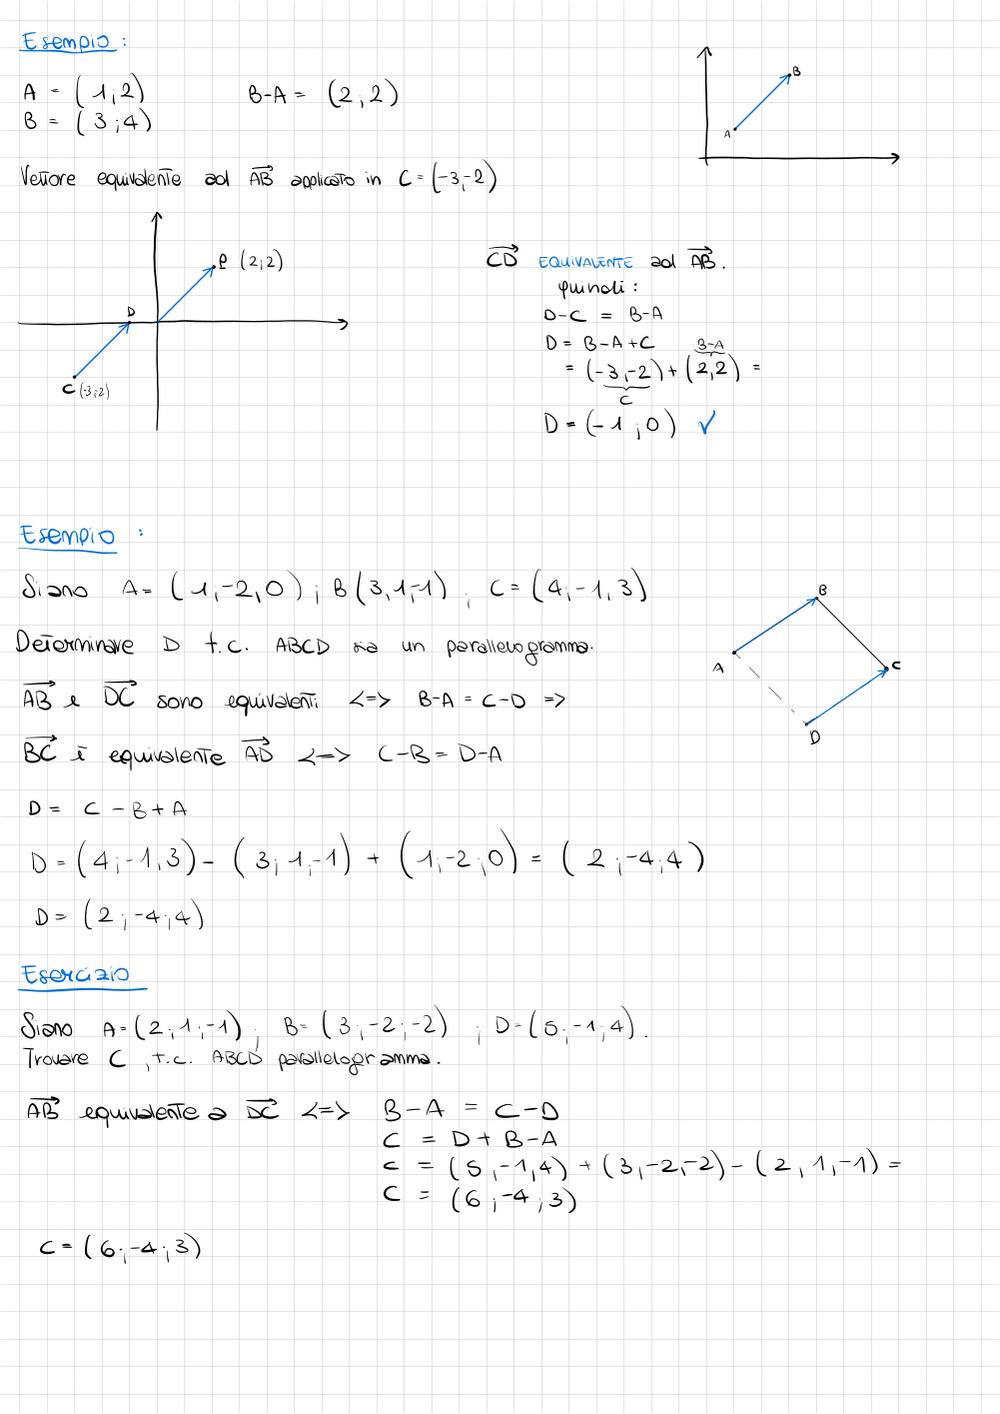 Esempio:
A = (1;2) B-A = (2;2)
B = (3;4)
B
A
Vettore equivalente ad AB applicato in C=(-3,-2)
P (2;2)
D
C (-3;2)
CD EQUIVALENTE ad AB.
quindi:
D-C = B-A
D = B-A+C B-A
= (-3,-2)+(2,2) =
C
D = (-1;0) ✓
Esempio:
Siano A = (1,-2,0); B(3,1,-1); C = (4,-1,3)
B
Determinare D t.c. ABCD sia un parallelogramma.
A
C
AB e DC sono equivalenti <=> B-A = C-D =>
D
BC è equivalente AD <=> C-B = D-A
D = C - B + A
D = (4;-1,3) - (3;1,-1) + (1,-2;0) = (2;-4;4)
D = (2;-4;4)
Esercizio
Siano A = (2;1;-1); B = (3;-2;-2); D = (5;-1;4).
Trovare C, t.c. ABCD parallelogramma.
AB equivalente a DC <=> B-A = C-D
C = D + B-A
C = (5,-1,4) + (3,-2,-2) - (2,1,-1) =
C = (6;-4;3)
C = (6;-4;3)